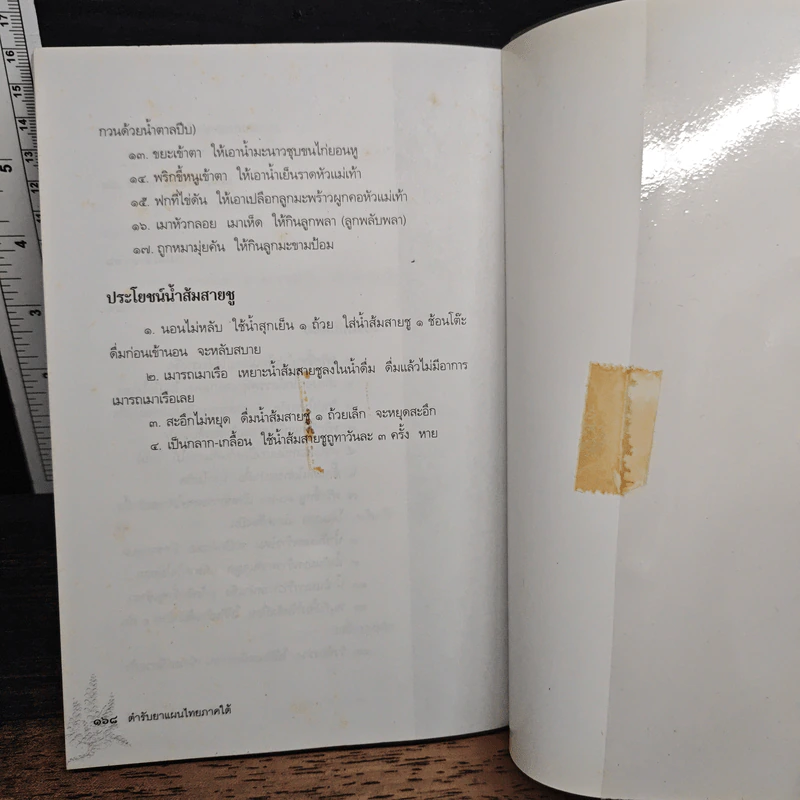 กวนด้วยน้ำตาลปีบ)
๑๓. ขยะเข้าตา ให้เอาน้ำมะนาวชุบขนไก่ยอนหู
๑๔. พริกขี้หนูเข้าตา ให้เอาน้ำเย็นราดหัวแม่เท้า
๑๕. ฟกที่ไข่ดัน ให้เอาเปลือกลูกมะพร้าวผูกคอหัวแม่เท้า
๑๖. เมาหัวกลอย เมาเห็ด ให้กินลูกพลา (ลูกพลับพลา)
๑๗. ถูกหมามุ่ยคัน ให้กินลูกมะขามป้อม
ประโยชน์น้ำส้มสายชู
๑. นอนไม่หลับ ใช้น้ำสุกเย็น ๑ ถ้วย ใส่น้ำส้มสายชู ๑ ช้อนโต๊ะ
ดื่มก่อนเข้านอน จะหลับสบาย
๒. เมารถเมาเรือ เหยาะน้ำส้มสายชูลงในน้ำดื่ม ดื่มแล้วไม่มีอาการ
เมารถเมาเรือเลย
๓. สะอึกไม่หยุด ดื่มน้ำส้มสายชู ๑ ถ้วยเล็ก จะหยุดสะอึก
๔. เป็นกลาก-เกลื้อน ใช้น้ำส้มสายชูถูทาวันละ ๓ ครั้ง หาย
๑๖๘ ตำรับยาแผนไทยภาคใต้
17
16
15
14
13
12
11
5
4
3